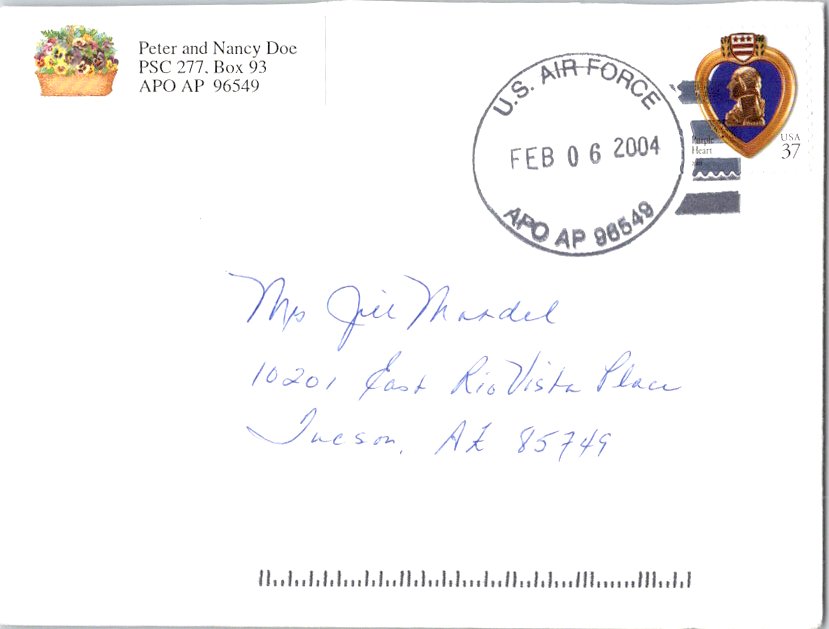 Peter and Nancy Doe
PSC 277, Box 93
APO AP 96549
U.S. AIR FORCE
FEB 06 2004
APO AP 96549
Purple
Heart
USA
37
Mrs Jill Mandel
10201 East Rio Vista Place
Tucson, AZ 85749